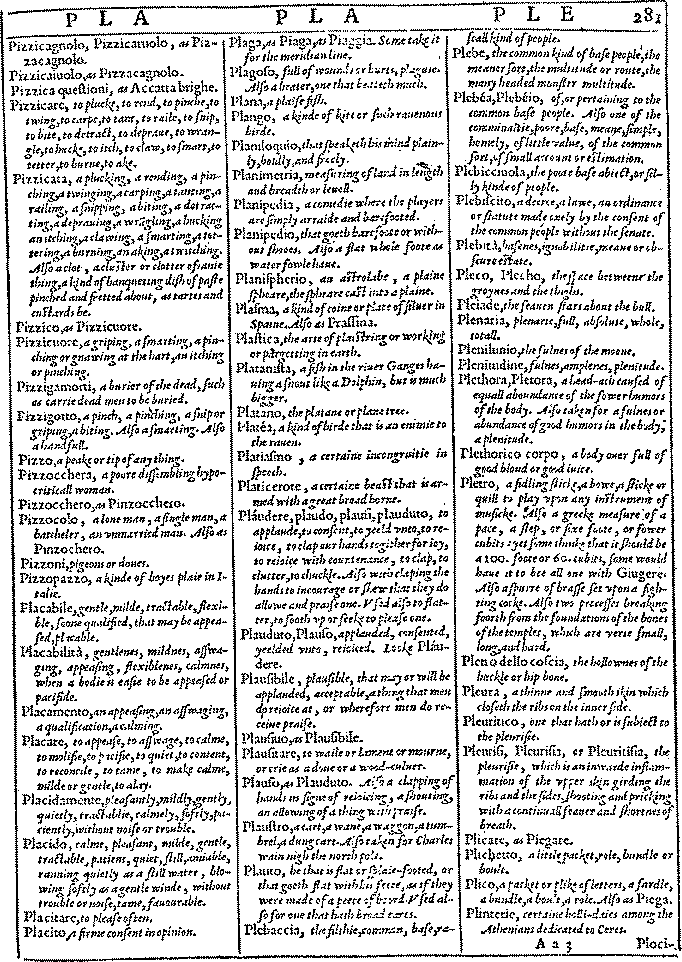 P L A
P L A
P L E
281
Pizzicagnolo, Pizzicaruolo, as Piz-
zacagnolo.
Pizzicaiuolo, as Pizzacagnolo.
Pizzica questioni, as Accatta brighe.
Pizzicare, to plucke, to rend, to pinche, to
twing, to carpe, to tant, to raile, to snip,
to bite, to detract, to depraue, to wran-
gle, to hucke, to itch, to claw, to smart, to
tetter, to burne, to ake.
Pizzicata, a plucking, a rending, a pin-
ching, a twinging, a carping, a tanting, a
railing, a snipping, a biting, a detrac-
ting, a deprauing, a wrāgling, a hucking
an itching, a clawing, a smarting, a tet-
tering, a burning, an aking, a twitching.
Also a clot, a cluster or clotter of anie
thing, a kind of banqueting dish of paste
pinched and fretted about, as tartes and
custards be.
Pizzico, as Pizzicuore.
Pizzicuore, a griping, a smarting, a pin-
ching or gnawing at the hart, an itching
or pinching.
Pizzigamorti, a burier of the dead, such
as carrie dead men to be buried.
Pizzigotto, a pinch, a pinching, a snip or
griping, a biting. Also a smarting. Also
a handfull.
Pizzo, a peake or tip of any thing.
Pizzocchera, a poure dissembling hypo-
criticall woman.
Pizzocchero, as Pinzocchero.
Pizzocolo, a lone man, a single man, a
batcheler, an vnmarried man. Also as
Pinzochero.
Pizzoni, pigeons or doues.
Pizzopazzo, a kinde of boyes plaie in I-
talie.
Placabile, gentle, milde, tractable, flexi-
ble, soone qualified, that may be appea-
sed, placable.
Placabilità, gentlenes, mildnes, asswa-
ging, appeasing, flexiblenes, calmnes,
when a bodie is easie to be appeased or
pacifide.
Placamento, an appeasing, an asswaging,
a qualification, a calming.
Placare, to appease, to asswage, to calme,
to molifie, to pacifie, to quiet, to content,
to reconcile, to tame, to make calme,
milde or gentle, to alay.
Placidamente, pleasantly, mildly, gently,
quietly, tractable, calmely, softly, pa-
ciently, without noise or trouble.
Placido, calme, pleasant, milde, gentle,
tractable, patient, quiet, still, amiable,
running quietly as a still water, blo-
wing softly as a gentle winde, without
trouble or noise, tame, fauourable.
Placitare, to please often.
Placito, a firme consent in opinion.
Plaga, as Piaga, as Piaggia. Some take it
for the meridian line.
Plagoso, full of wounds or hurts, plaguie.
Also a beater, one that beateth much.
Plana, a plaise fish.
Plango, a kinde of kite or such rauenous
birde.
Planiloquio, that speaketh his mind plain-
ly, boldly, and freely.
Planimetria, measuring of land in length
and breadth or leuell.
Planipedia, a comedie where the players
are simply arraide and barefooted.
Planipedio, that goeth barefoote or with-
out shooes. Also a flat whole foote as
water fowle haue.
Planispherio, an astrolabe, a plaine
spheare, the spheare cast into a plaine.
Plasma, a kind of coine or plate of siluer in
Spaine. Also as Prassina.
Plastica, the arte of plastring or working
or pargetting in earth.
Platanista, a fish in the riuer Ganges ha-
uing a snout like a Dolphin, but is much
bigger.
Platano, the platane or plane tree.
Platéa, a kind of birde that is an enimie to
the rauen.
Platiasmo, a certaine incongruitie in
speech.
Platicerote, a certaine beast that is ar-
med with a great broad horne.
Pláudere, plaudo, plausi, plauduto, to
applaude, to consent, to yeeld vnto, to re-
ioice, to clap our hands together for ioy,
to reioice with countenance, to clap, to
clutter, to chuckle. Also with claping the
hands to incourage or shew that they do
allowe and praise one. Vsed also to flat-
ter, to sooth vp or seeke to please one.
Plauduto, Plauso, applauded, consented,
yeelded vnto, reioiced. Looke Pláu-
dere.
Plausibile, plausible, that may or will be
applauded, acceptable, a thing that men
do reioice at, or wherefore men do re-
ceiue praise.
Plausiuo, as Plausibile.
Plausitare, to waile or lament or mourne,
or crie as a doue or a wood-culuer.
Plauso, as Plauduto. Also a clapping of
hands in signe of reioicing, a shouting,
an allowing of a thing with praise.
Plaustro, a cart, a wane, a waggon, a tum-
brel, a dung cart. Also taken for Charles
wain nigh the north pole.
Plauto, he that is flat or splaie-footed, or
that goeth flat with his feete, as if they
were made of a peece of bord. Vsed al-
so for one that hath broad eares.
Plebaccia, the filthie, common, base, ra-
scall kind of people.
Plebe, the common kind of base people, the
meaner sort, the multitude or route, the
many headed monster multitude.
Plebéa, Plebéio, of, or pertaining to the
common base people. Also one of the
comminaltie, poore, base, meane, simple,
homely, of little value, of the common
sort, of small account or estimation.
Plebicciuola, the poore base abiect, or sil-
ly kinde of people.
Plebiscito, a decree, a lawe, an ordinance
or statute made onely by the consent of
the common people without the senate.
Plebità, basenes, ignobilitie, meane or ob-
scure estate.
Pleco, Plecho, the space betweene the
groynes and the thighs.
Pleiade, the seauen stars about the bull.
Plenaria, plenarie, full, absolute, whole,
totall.
Plenilunio, the fulnes of the moone.
Plenitudine, fulnes, amplenes, plenitude.
Plethora, Pletora, a head-ach caused of
equall aboundance of the fower humors
of the body. Also taken for a fulnes or
abundance of good humors in the body,
a plenitude.
Plethorico corpo, a body ouer full of
good bloud or good iuice.
Pletro, a fidling sticke, a bowe, a sticke or
quill to play vpon any instrument of
musicke. Also a greeke measure of a
pace, a step, or sixe foote, or fower
cubits: yet some thinke that it should be
a 100. foote or 60. cubits, some would
haue it to bee all one with Giugere.
Also a spurre of brasse set vpon a figh-
ting cocke. Also two processes breaking
foorth from the foundation of the bones
of the temples, which are verie small,
long, and hard.
Pleno dello coscia, the hollownes of the
huckle or hip bone.
Pleura, a thinne and smooth skin which
closeth the ribs on the inner side.
Pleuritico, one that hath or is subiect to
the pleurisie.
Pleurisi, Pleurisia, or Pleuritisia, the
pleurisie, which is an inwarde inflam-
mation of the vpper skin girding the
ribs and the sides, shooting and pricking
with a continuall feauer and shortenes of
breath.
Plicare, as Piegare.
Plichetto, a little packet, role, bundle or
boult.
Plico, a packet or plike of letters, a fardle,
a bundle, a boult, a role. Also as Piega.
Plinterie, certaine holli-daies among the
Athenians dedicated to Ceres.
A a 3
Ploci-